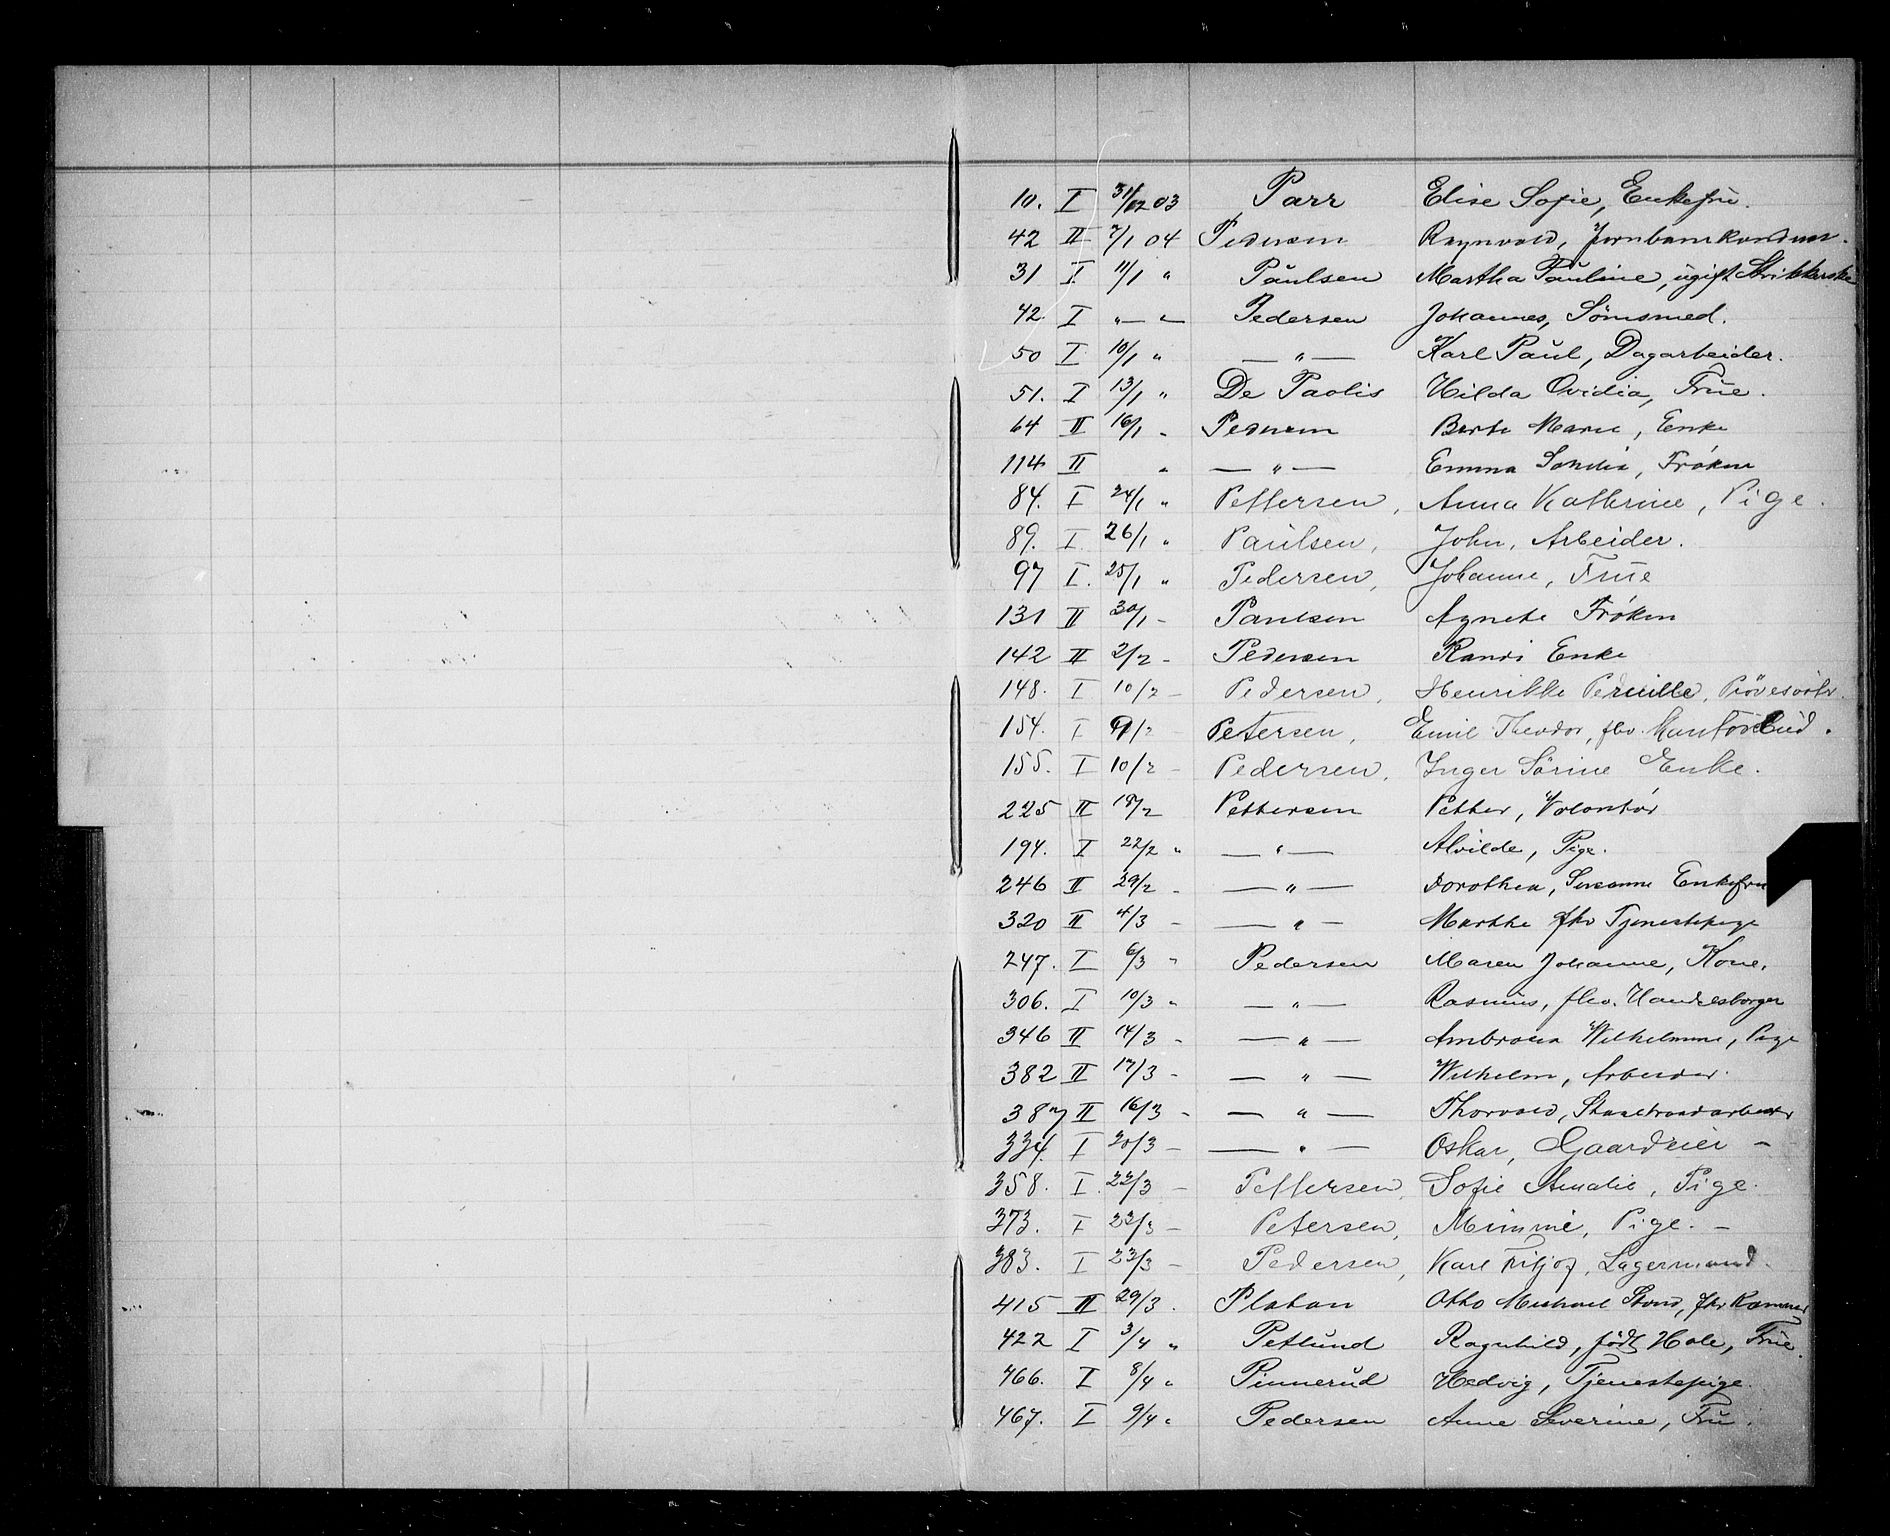 10. I 31/12 03 Parr Elise Sofie, Enkefru.
42 II 7/1 04 Pedersen Raynvald, Jernbanekonduct.
31 I 11/1 " Paulsen Martha Pauline, ugift Strikkerske
42. I "—"— Pedersen Johannes, Sömsmed.
50 I 10/1 " — " — Karl Paul, Dagarbeider.
51. I 13/1 " De Paolis Hilda Ovidia, Frue.
64 II 16/1 - Pedersen Berte Marie, Enke
114 II " — " — Emma Frøken
84. I 24/1 " Pettersen, Anna Kathrine, Pige.
89. I 26/1 " Paulsen, John, Arbeider.
97 I. 25/1 " Pedersen, Johanne, Frue
131 II 30/1 - Paulsen Agnete Frøken
142 II 2/2 - Pedersen Randi Enke
148. I 10/2 - Pedersen, Henrikke Pernille,
154. I 9/2 Petersen, Emil Theodor, fhv. Kontorbud.
155. I 10/2 - Pedersen, Inger Sörine Enke.
225 II 18/2 Pettersen Petter, Volontør
194. I 22/2 " — " — Alvilde, Pige.
246 II 29/2 - — " — Dorothea, Susanne Enkefru
320 II 4/3 - — " — Marthe fhv Tjenestepige
247. I 6/3 " Pedersen Maren Johanne, Kone.
306. I 10/3 " — " — Rasmus, fhv. Handelsborger
346 II 14/3 - — " — Ambrosia Wilhelmine, Pige
382 II 17/3 - — " — Wilhelm, Arbeider.
387 II 16/3 - — " — Thorvald,
334. I 20/3 - — " — Oskar, Gaardeier -
358. I. 22/3 - Pettersen, Sofie Amalie, Pige.
373. I 22/3 - Petersen, Mimmi, Pige. -
383. I 23/3 - Pedersen, Karl Fritjof, Lagermand.
415 II 29/3. Platou Otto Michael Stend, fhv
422 I 3/4 " Petlund Ragnhild, født Hole, Frue.
466. I 8/4 " Pinnerud Hedvig, Tjenestepige.
467. I 9/4 " Pedersen Anne Severine, Fru.